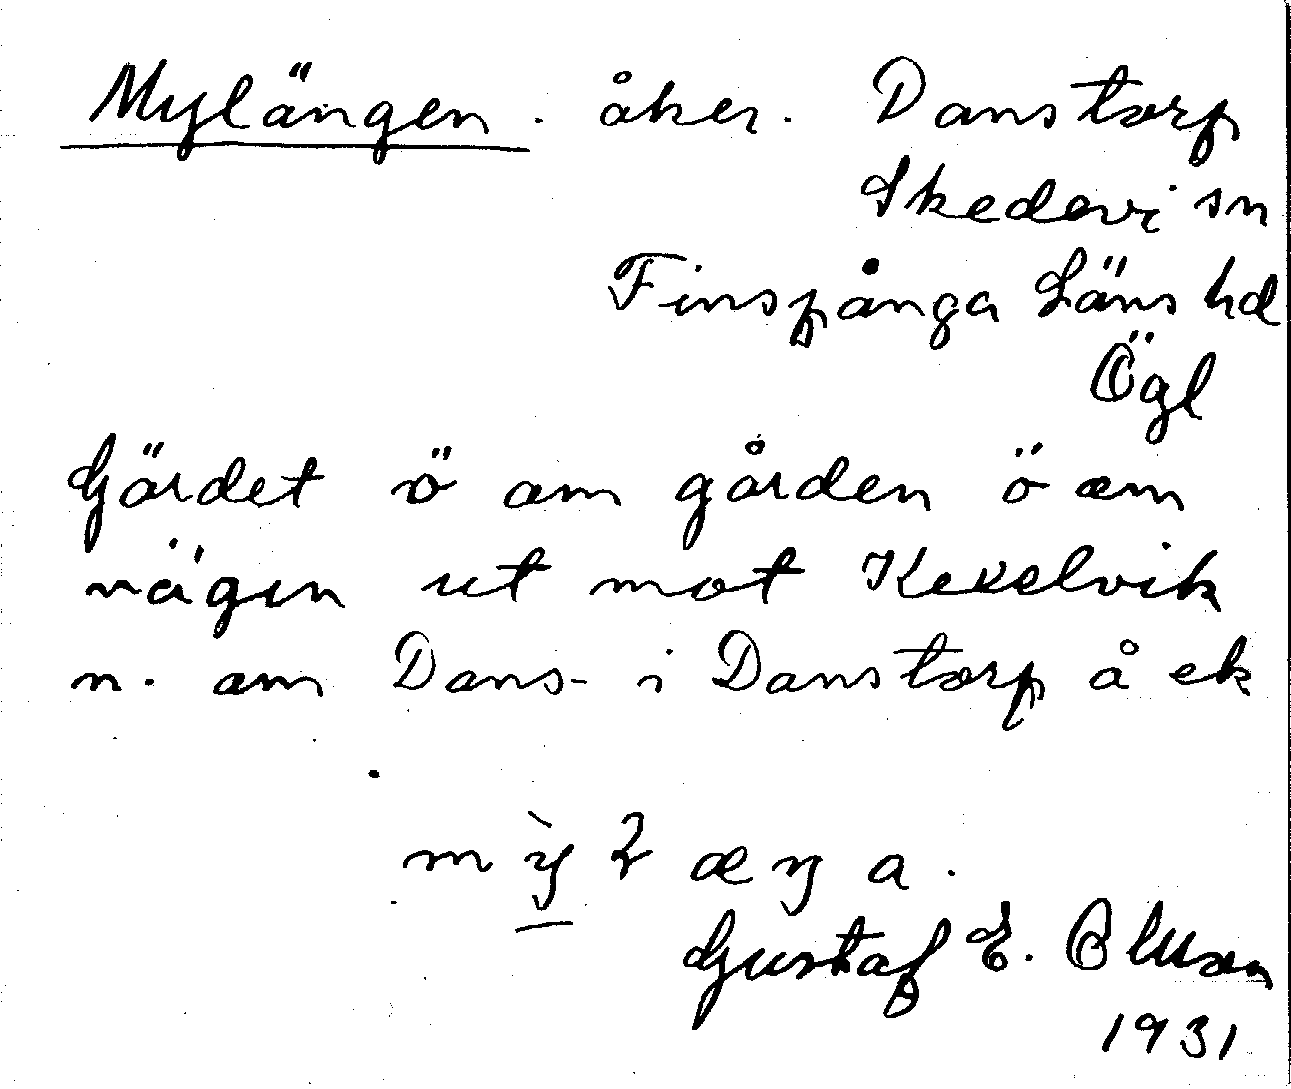 Mylängen. åker. Danstorp
Skedevi sn
Finspånga Läns hd
Ögl
Gärdet ö om gården ö om
vägen ut mot Kekelvik
n. om Dans- i Danstorp å ek
Gustaf E. Olsson
1931